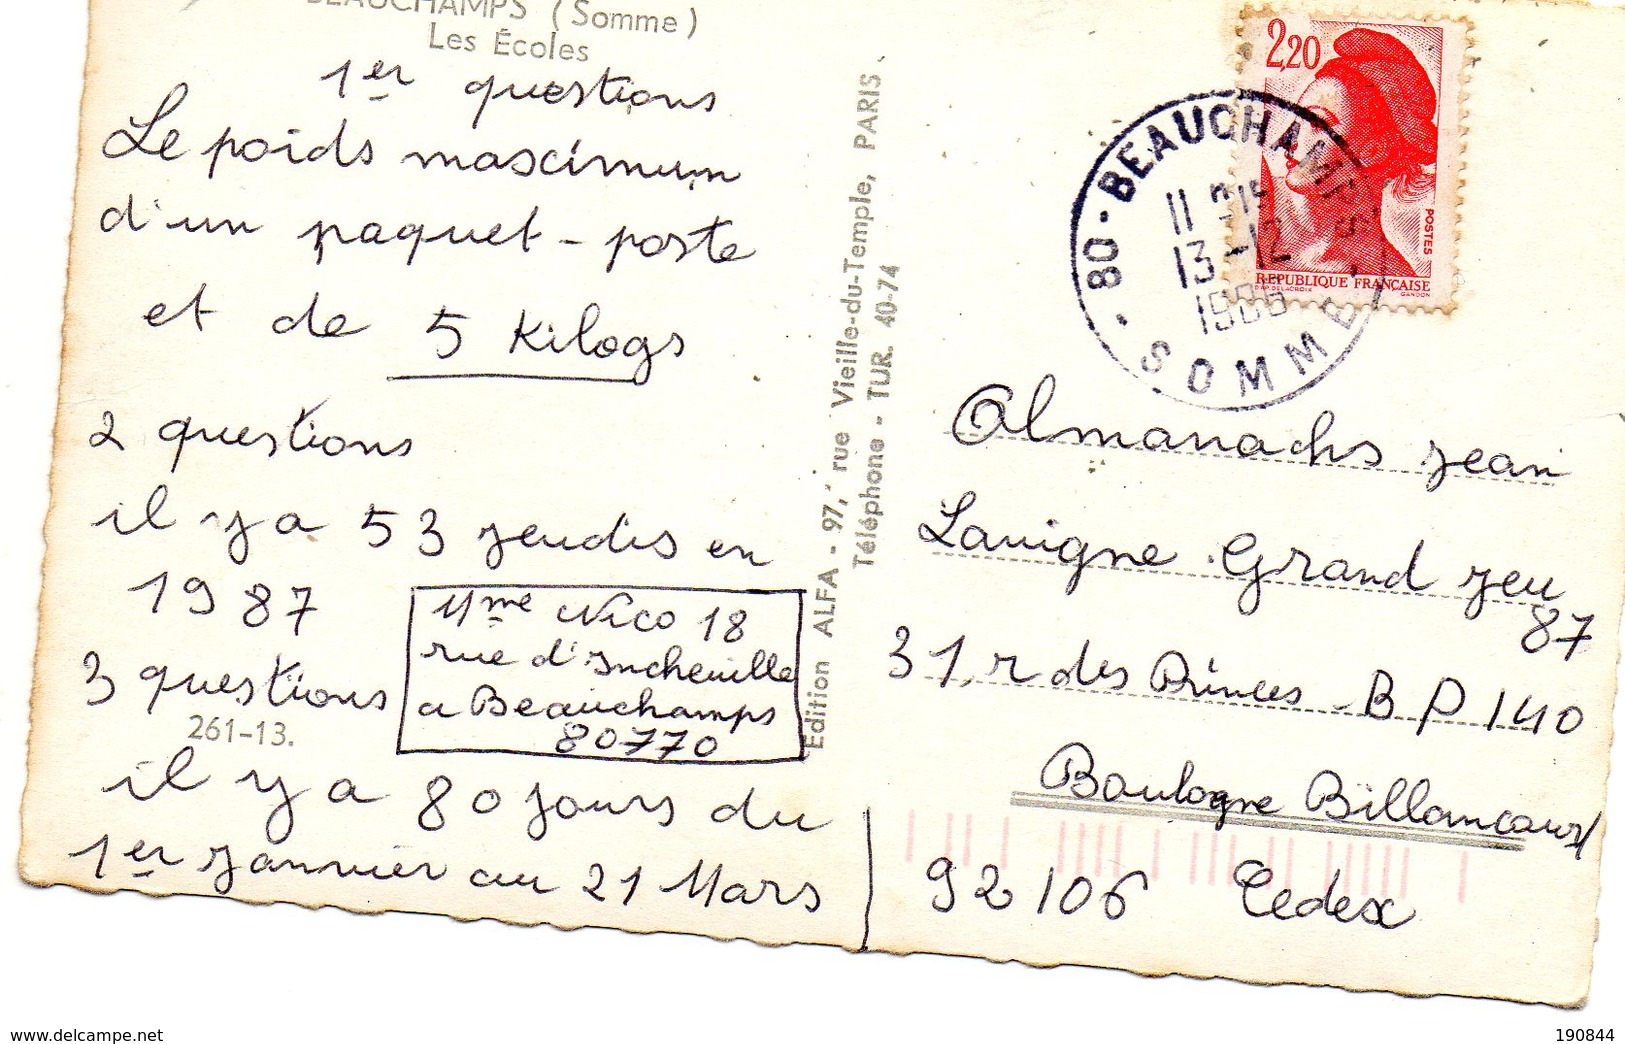 BEAUCHAMPS (Somme)
Les Écoles
1er questions
Le poids maximum
d'un paquet - poste
et de 5 Kilogs
2 questions
il y a 53 jeudis en
1987
3 questions
261-13.
il y a 80 jours du
1er janvier au 21 Mars
Mme Nico 18
rue d'Incheville
a Beauchamps
80770
Edition ALFA - 97, rue Vieille-du-Temple, PARIS
Téléphone - TUR. 40-74
2,20
POSTES
REPUBLIQUE FRANÇAISE
D'AP. DELACROIX
GANDON
80 - BEAUCHAMPS
11
13 -12
1986
SOMME
Almanachs Jean
Lavigne Grand jeu
87
31, r des Princes - BP 140
Boulogne Billancourt
92106 Cedex
www.delcampe.net
190844